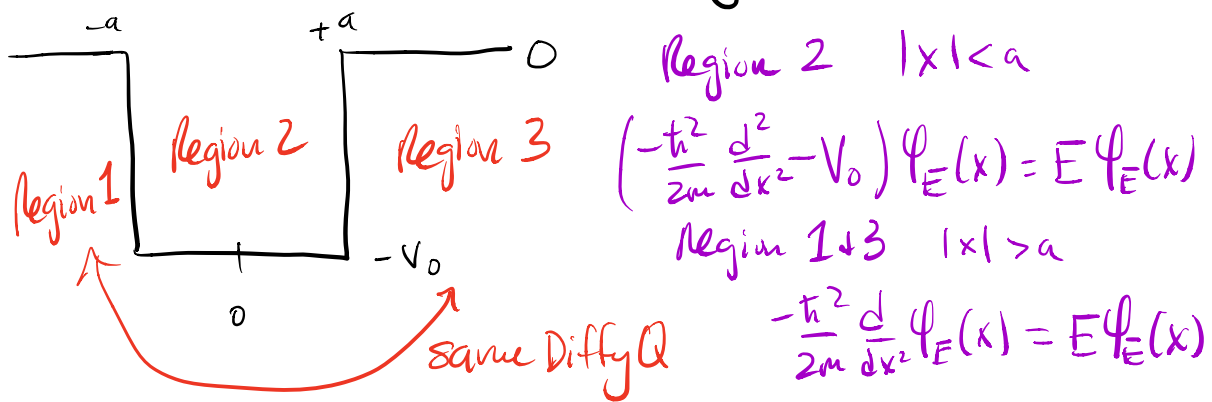 -a
+a
0
Region 1
Region 2
Region 3
-V₀
0
same Diffy Q
Region 2 |x|<a
(-ħ²/2m d²/dx² - V₀) φ_E(x) = E φ_E(x)
Region 1&3 |x|>a
-ħ²/2m d/dx² φ_E(x) = E φ_E(x)